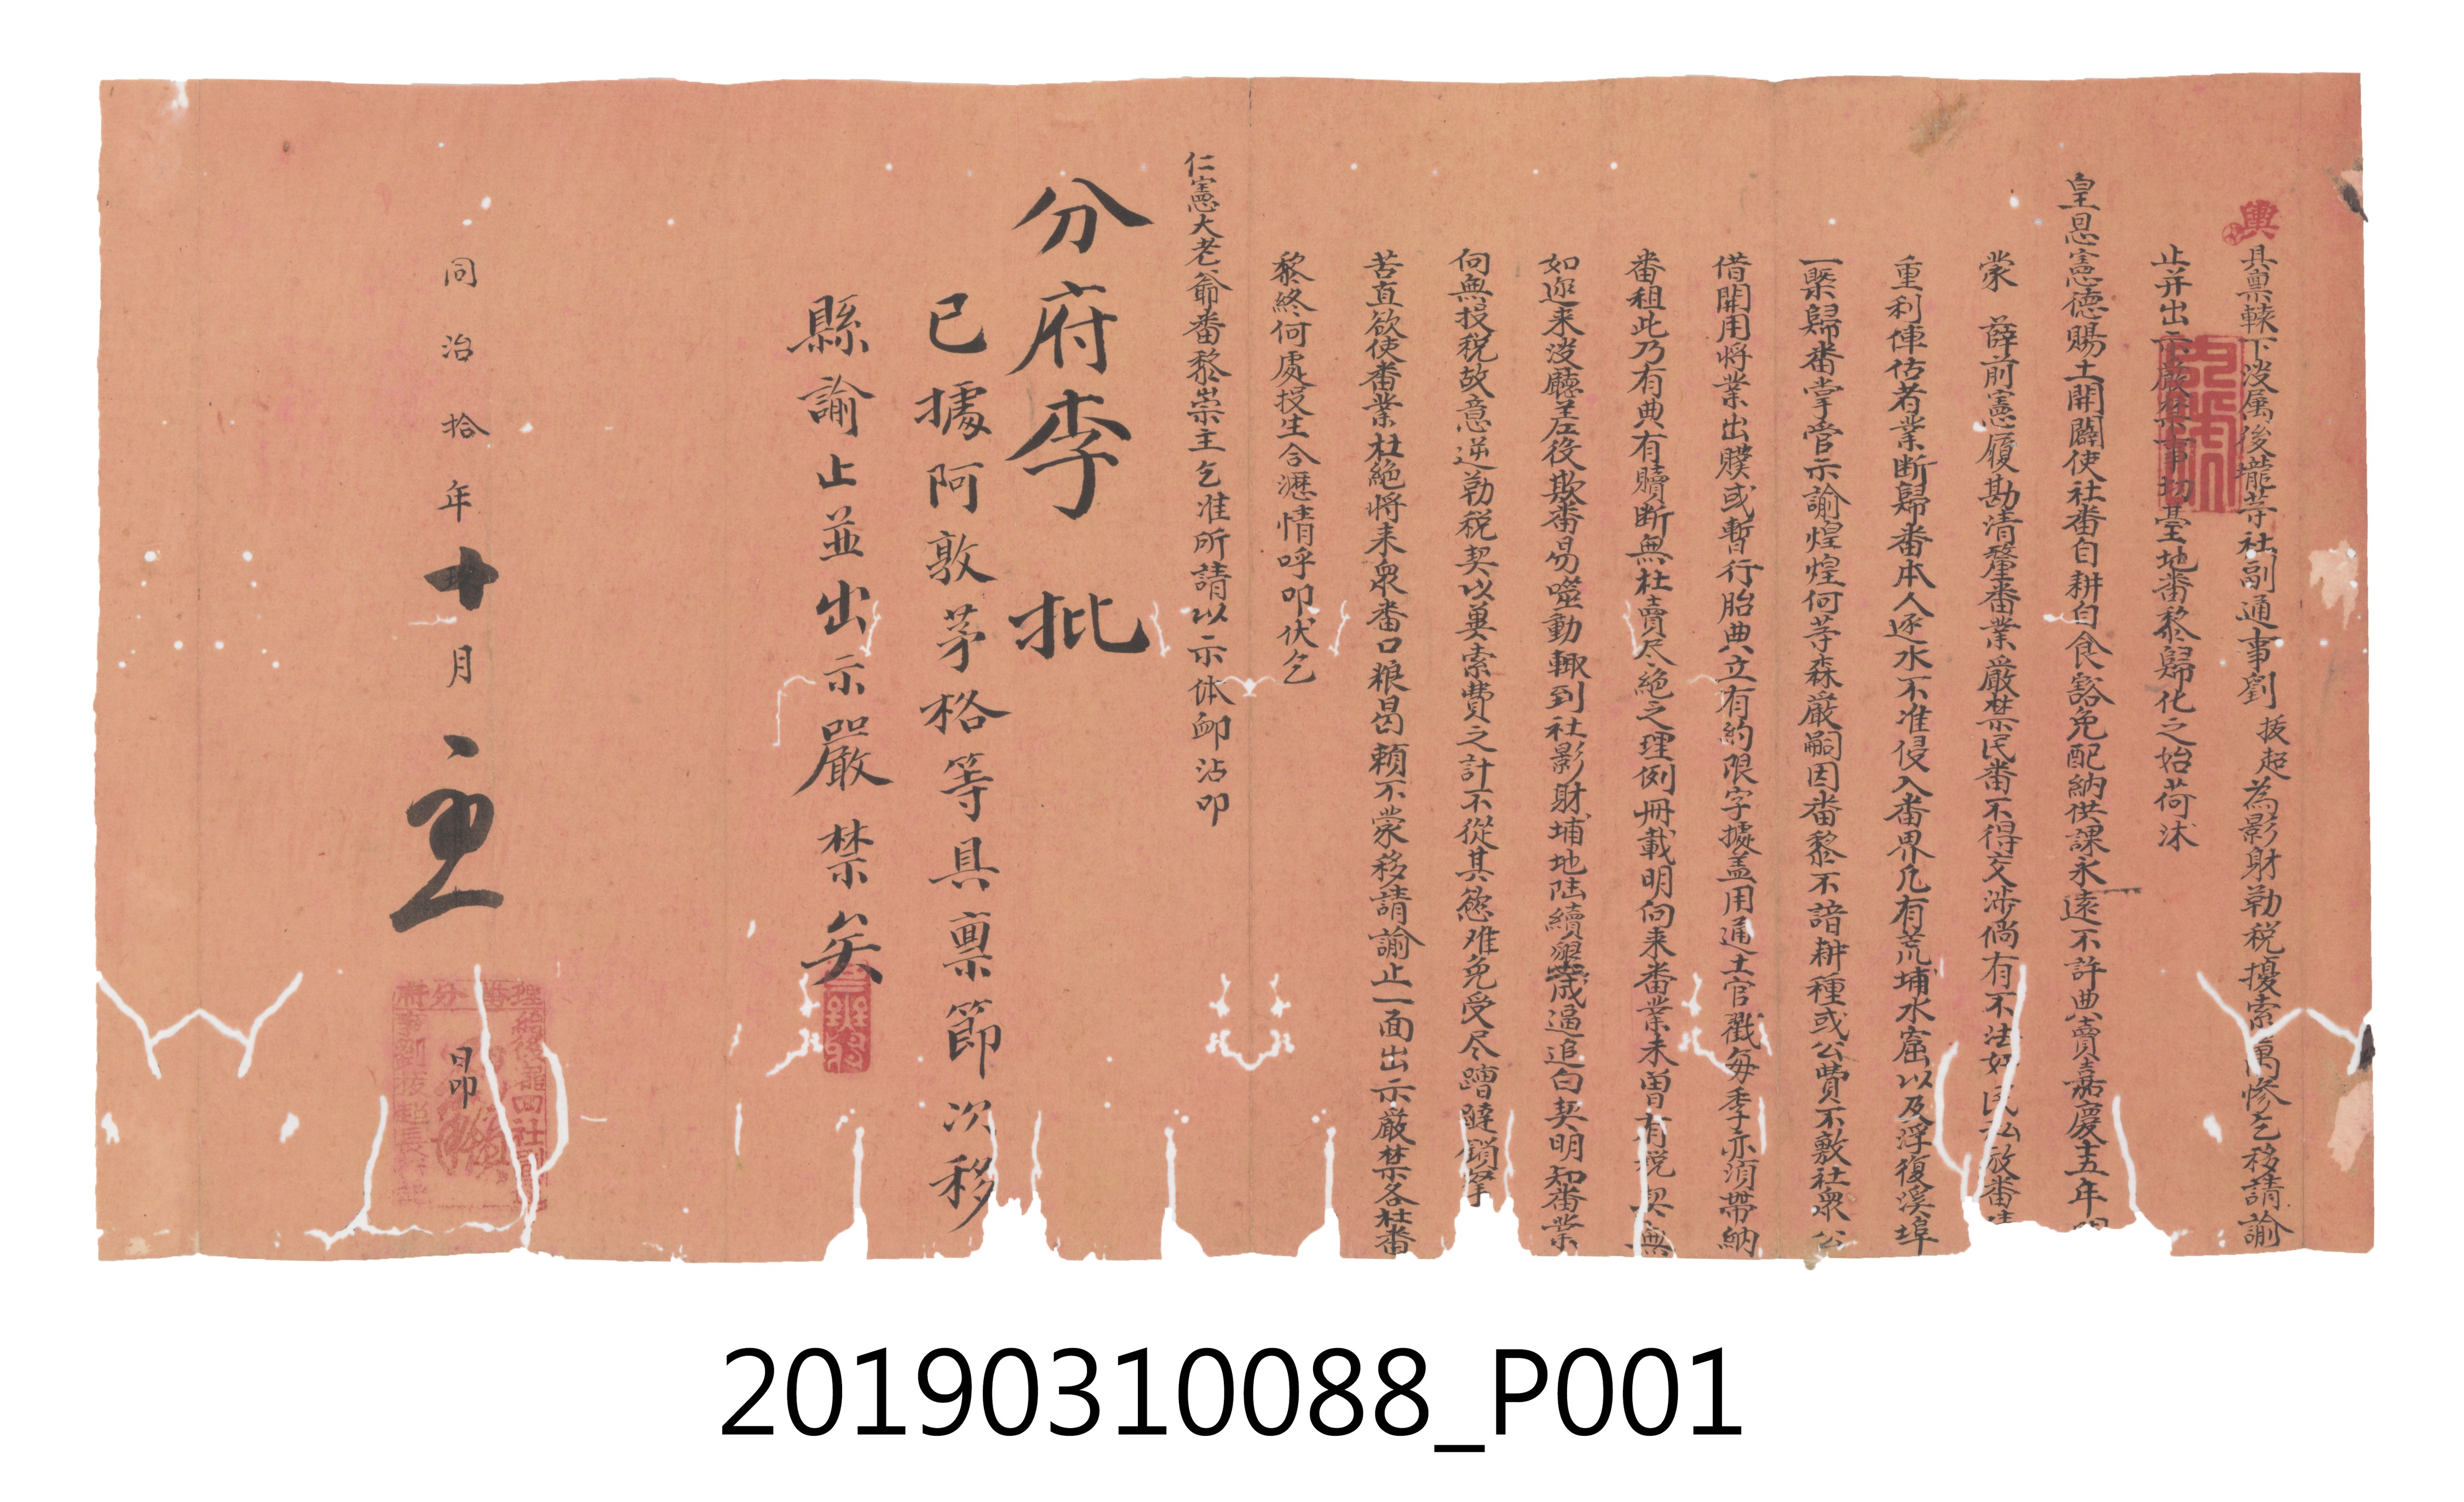 具禀轅下淡属後壠等社副通事劉援超為影財勒稅擾索萬慘乞移請諭
止并出示嚴禁事切臺地番黎歸化之始荷沐
皇恩憲德賜土開闢使社番自耕自食豁免配納供課永遠不許典賣嘉慶十五年間
蒙 薛前憲履勘清釐番業嚴禁民番不得交涉倘有不法奸民私放番
重利俥估者業断歸番本人逐水不准侵入番界凡有荒埔水窟以及浮復溪埠
一槩歸番掌管示諭煌煌何等森嚴嗣因番黎不諳耕種或公費不敷社衆公
借開用將業出贌或暫行胎典立有約限字據盖用通土官戳每季亦須帶納
番租此乃有典有贖断無杜賣尽絶之理例冊載明向来番業未曽有稅契無
如迩来淡廳至左役欺番易噬動輙到社影財埔地陸續墾成逼追白契明知番業
向無投稅故意逆勒稅契以兾索費之計不從其慾难免受尽蹧躂鎖拿
苦直欲使番業杜絶將来衆番口粮曷頼不蒙移請諭止一面出示嚴禁各社番
黎終何處投生合瀝情呼叩伏乞
仁憲大老爺番黎崇主乞准所請以示体卹沾叩
分府李 批
已據阿敦茅格等具禀節次移
縣諭止並出示嚴禁矣
同治拾年十月 日 昻
理番分府
給後壠四社副通
事劉援超長行戳
20190310088_P001